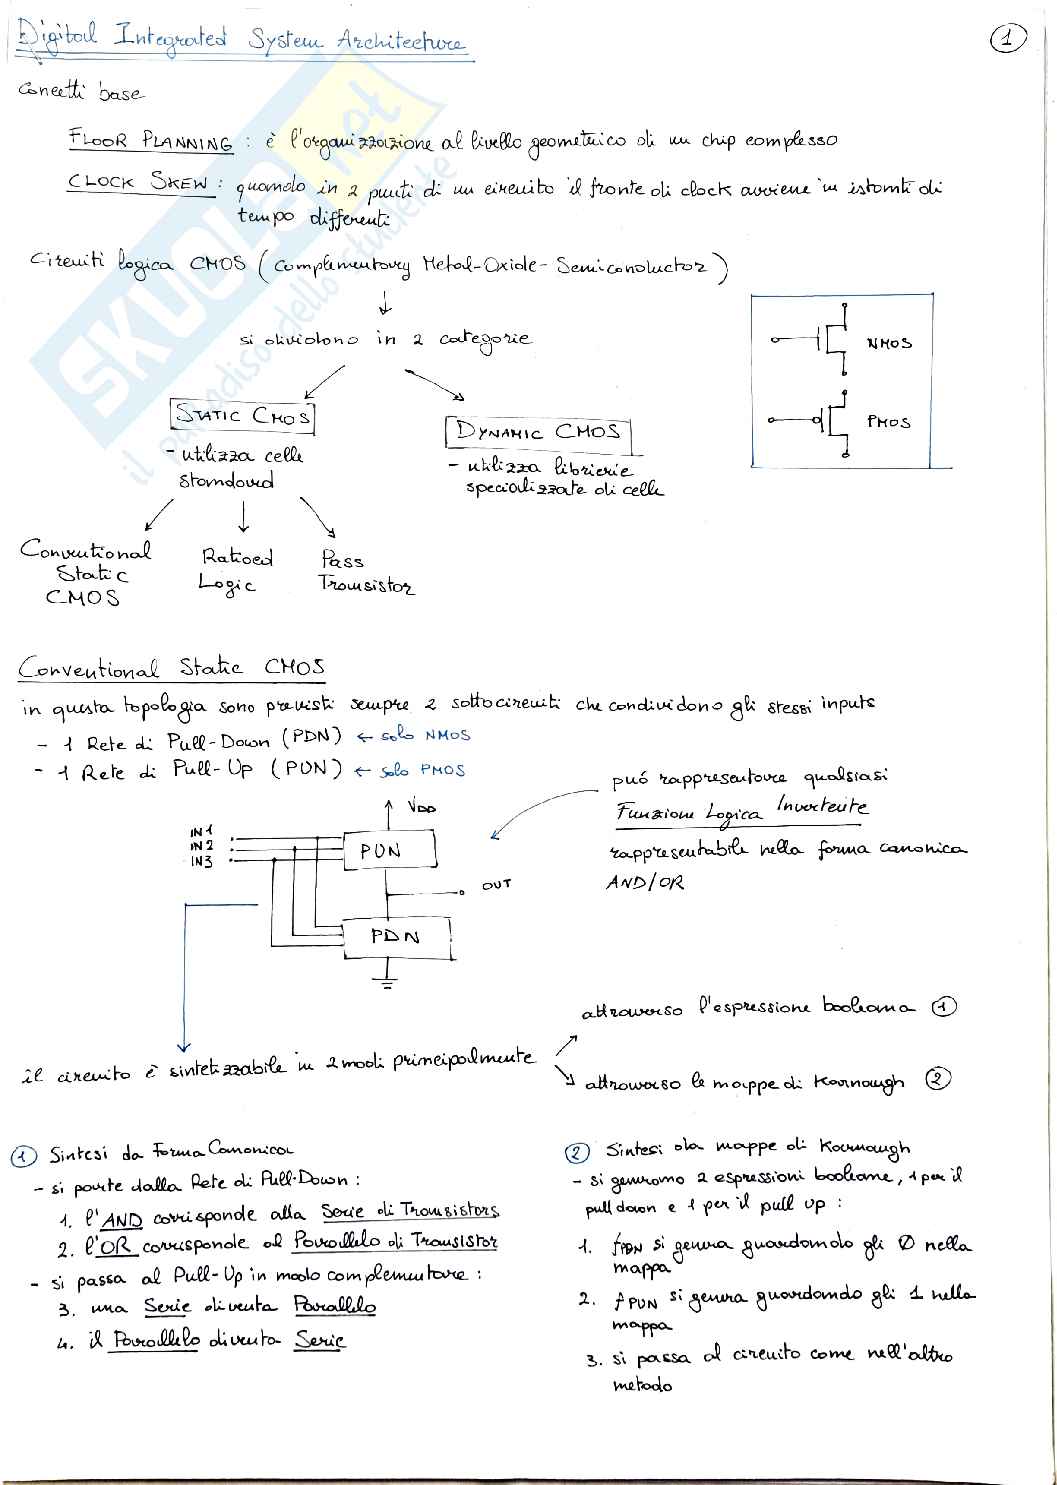 Digital Integrated System Architecture
1
Concetti base
FLOOR PLANNING : è l'organizzazione al livello geometrico di un chip complesso
CLOCK SKEW : quando in 2 punti di un circuito il fronte di clock avviene in istanti di
tempo differenti
Circuiti logica CMOS (Complementary Metal-Oxide-Semiconductor)
si dividono in 2 categorie
NMOS
PMOS
STATIC CMOS
- utilizza celle
standard
DYNAMIC CMOS
- utilizza librerie
specializzate di celle
Conventional
Static
CMOS
Ratioed
Logic
Pass
Transistor
Conventional Static CMOS
in questa topologia sono previsti sempre 2 sottocircuiti che condividono gli stessi inputs
- 1 Rete di Pull-Down (PDN) ← solo NMOS
- 1 Rete di Pull-Up (PUN) ← solo PMOS
può rappresentare qualsiasi
Funzione Logica Invertente
rappresentabile nella forma canonica
AND/OR
VDD
IN1
IN2
IN3
PUN
OUT
PDN
il circuito è sintetizzabile in 2 modi principalmente
attraverso l'espressione booleana 1
attraverso le mappe di Karnaugh 2
1 Sintesi da Forma Canonica
- si parte dalla Rete di Pull-Down :
1. l'AND corrisponde alla Serie di Transistors
2. l'OR corrisponde al Parallelo di Transistor
- si passa al Pull-Up in modo complementare :
3. una Serie diventa Parallelo
4. il Parallelo diventa Serie
2 Sintesi da mappe di Karnaugh
- si generano 2 espressioni booleane, 1 per il
pull down e 1 per il pull up :
1. fPDN si genera guardando gli 0 nella
mappa
2. fPUN si genera guardando gli 1 nella
mappa
3. si passa al circuito come nell'altro
metodo
SKUOLA.net
il paradiso dello studente